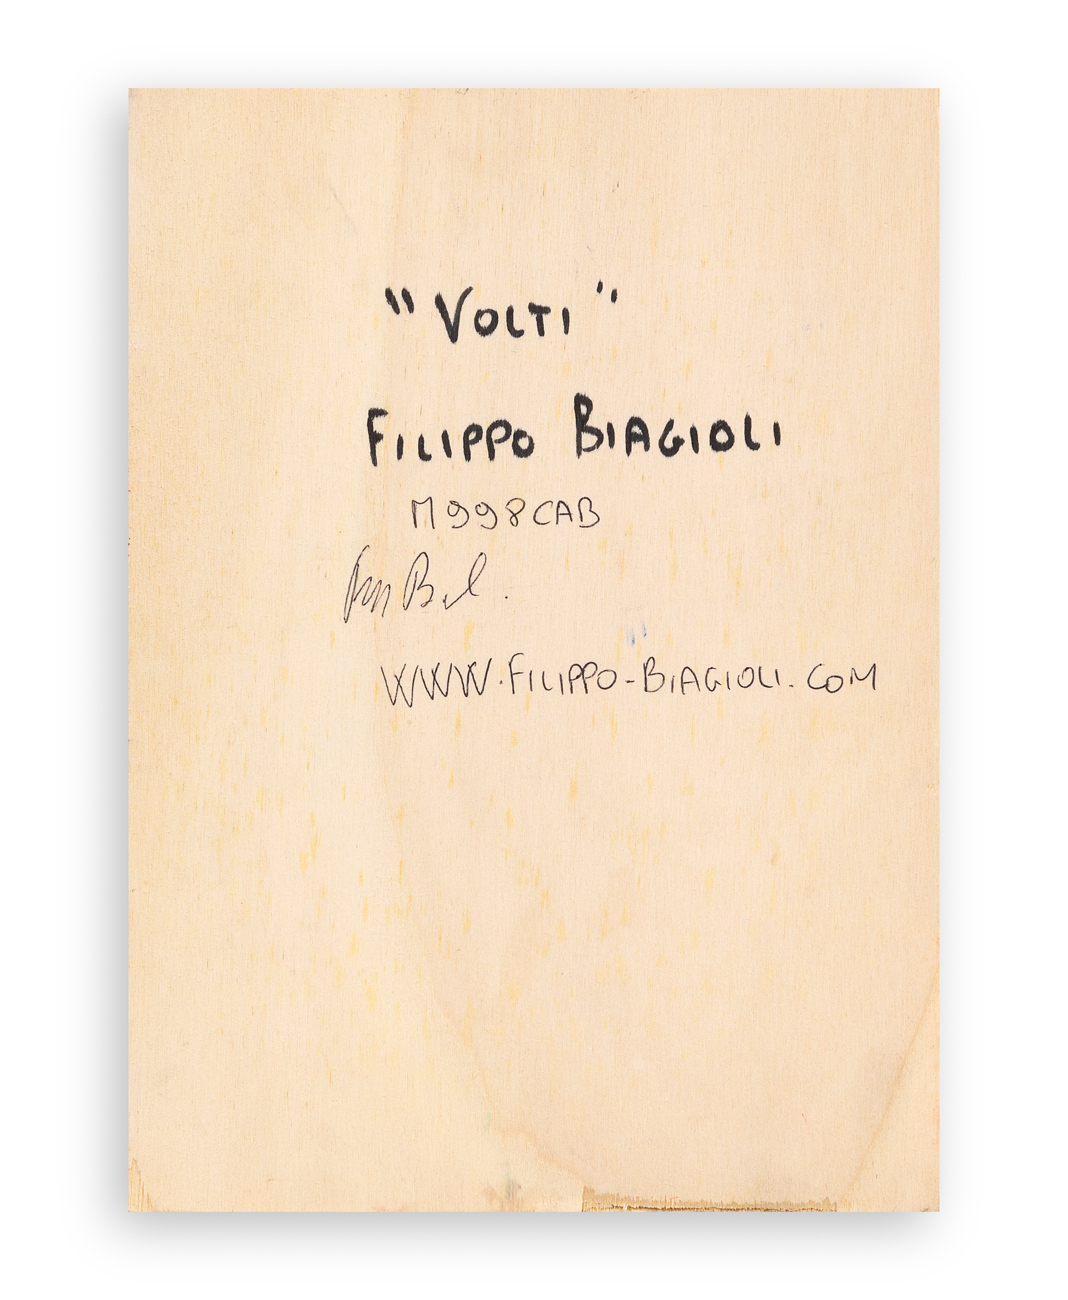 "VOLTI"
FILIPPO BIAGIOLI
M998CAB
WWW.FILIPPO-BIAGIOLI.COM